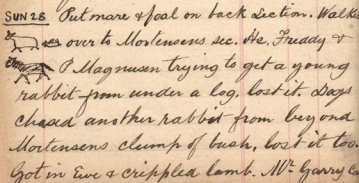 SUN 28 Put mare & foal on back Section. Walk
over to Mortensens sec. He, Freddy &
P Magnusen trying to get a young
rabbit from under a log, lost it. Dogs
chased another rabbit from beyond
Mortensens clump of bush, lost it too.
Got in Ewe & crippled lamb. Mr. Garry